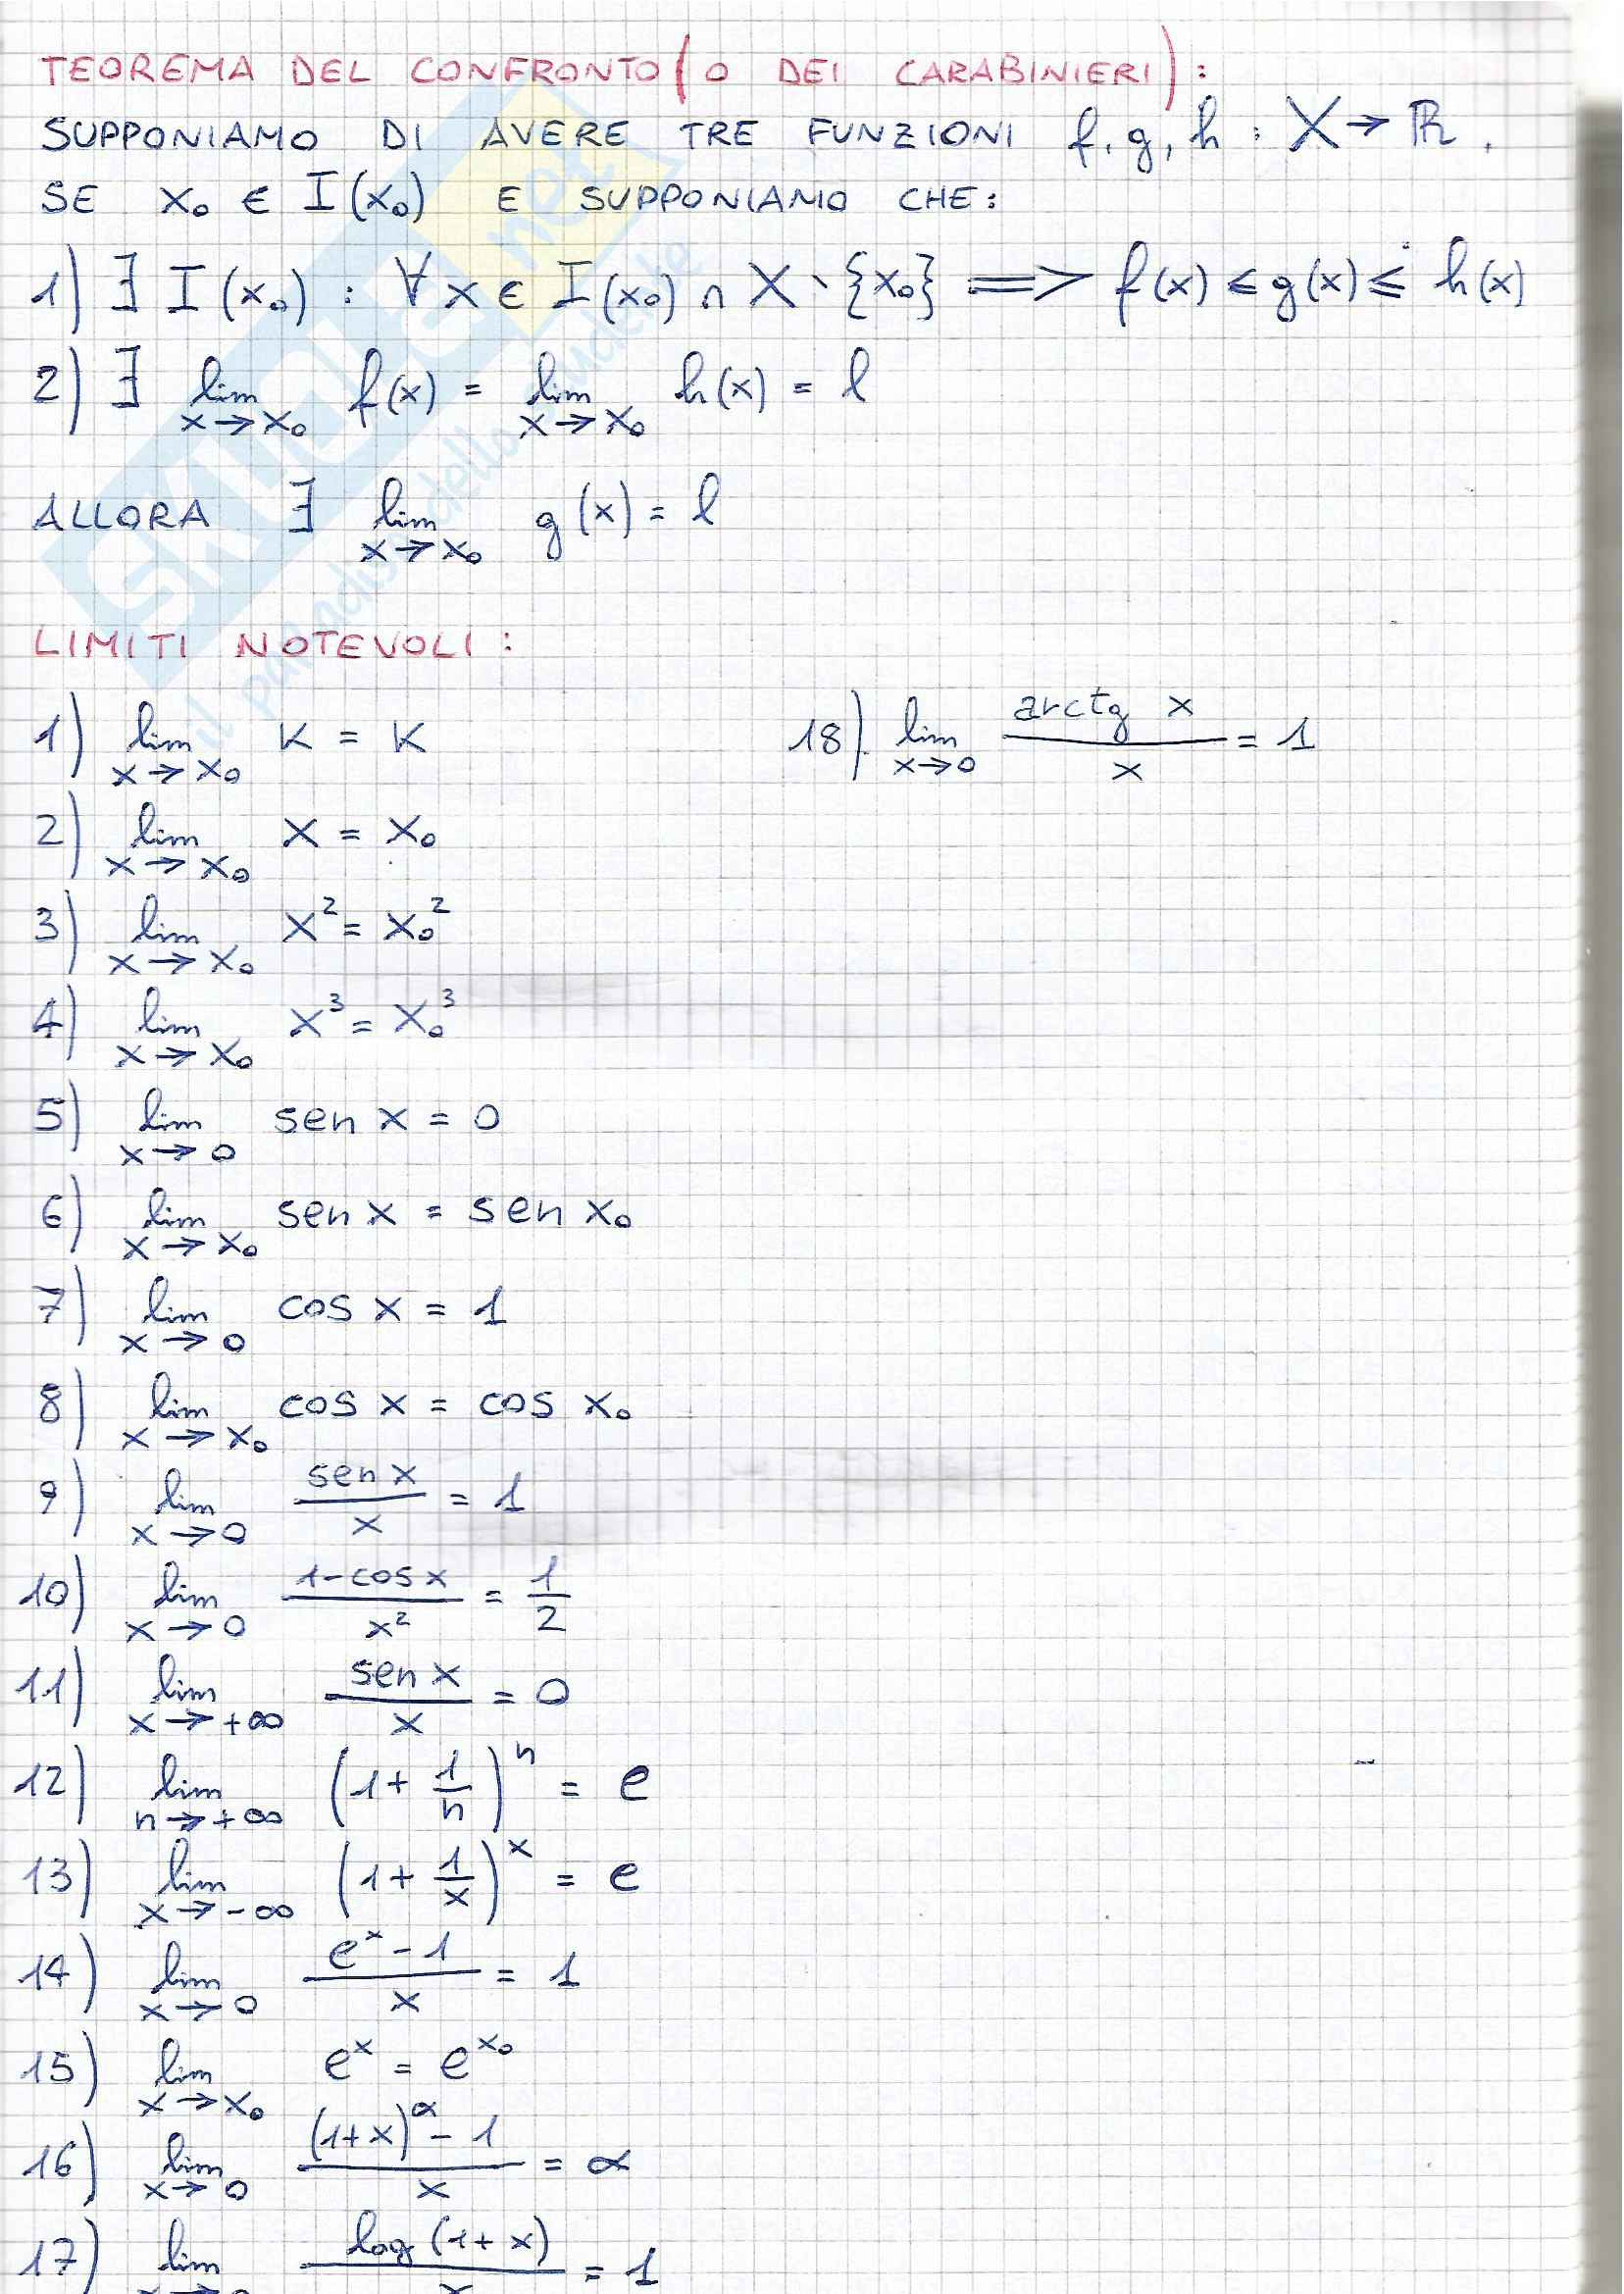 TEOREMA DEL CONFRONTO (O DEI CARABINIERI):
SUPPONIAMO DI AVERE TRE FUNZIONI f, g, h : X → ℝ.
SE x₀ ∈ I(x₀) E SUPPONIAMO CHE:
1) ∃ I(x₀) : ∀ x ∈ I(x₀) ∩ X \ {x₀} ⟹ f(x) ≤ g(x) ≤ h(x)
2) ∃ lim x→x₀ f(x) = lim x→x₀ h(x) = l
ALLORA ∃ lim x→x₀ g(x) = l
SKUOLA.net
il paradiso della studente
LIMITI NOTEVOLI:
1) lim x→x₀ K = K
2) lim x→x₀ x = x₀
3) lim x→x₀ x² = x₀²
4) lim x→x₀ x³ = x₀³
5) lim x→0 sen x = 0
6) lim x→x₀ sen x = sen x₀
7) lim x→0 cos x = 1
8) lim x→x₀ cos x = cos x₀
9) lim x→0 sen x / x = 1
10) lim x→0 1-cos x / x² = 1/2
11) lim x→+∞ sen x / x = 0
12) lim n→+∞ (1 + 1/n)ⁿ = e
13) lim x→-∞ (1 + 1/x)ˣ = e
14) lim x→0 eˣ - 1 / x = 1
15) lim x→x₀ eˣ = e^x₀
16) lim x→0 (1+x)^α - 1 / x = α
17) lim x→0 log(1+x) / x = 1
18) lim x→0 arctg x / x = 1